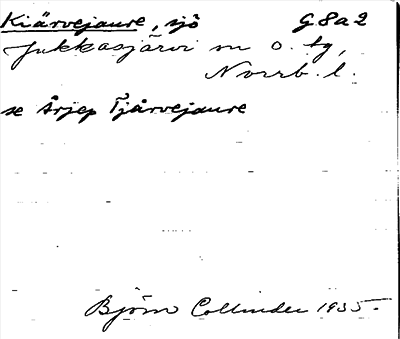 Kiärvejaure, sjö G8a2
Jukkasjärvi sn o. tg,
Norrb. l.
se Årjep Tjårvejaure
Björn Collinder 1935.